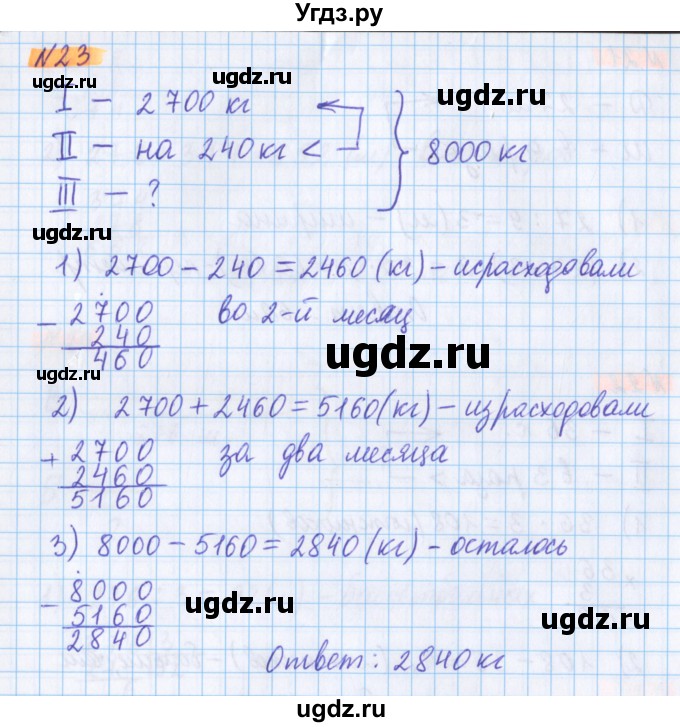 Угдз.ру
№23
ugdz.ru ugdz.ru
I – 2 700 кг
II – на 240 кг < 8000 кг
III – ?
ugdz.ru ugdz.ru
1) 2700 – 240 = 2460 (кг) – исрасходовали
– 2700 во 2-й месяц
240
460
ugdz.ru
ugdz.ru
2) 2700 + 2460 = 5160 (кг) – израсходовали
+ 2700 за два месяца
2460
5160
ugdz.ru
3) 8000 – 5160 = 2840 (кг) – осталось
– 8000
5160
2840
ugdz.ru ugdz.ru
Ответ: 2840 кг
ugdz.ru